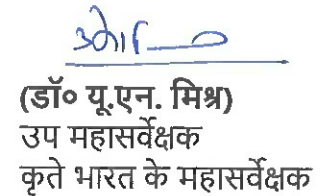 (डॉ० यू.एन. मिश्र)
उप महासर्वेक्षक
कृते भारत के महासर्वेक्षक